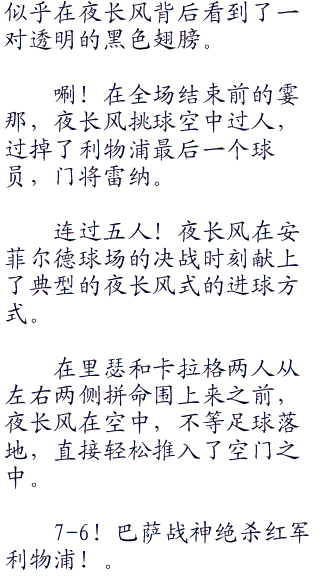 似乎在夜长风背后看到了一
对透明的黑色翅膀。
唰！在全场结束前的霎
那，夜长风挑球空中过人，
过掉了利物浦最后一个球
员，门将雷纳。
连过五人！夜长风在安
菲尔德球场的决战时刻献上
了典型的夜长风式的进球方
式。
在里瑟和卡拉格两人从
左右两侧拼命围上来之前，
夜长风在空中，不等足球落
地，直接轻松推入了空门之
中。
7-6！巴萨战神绝杀红军
利物浦！。